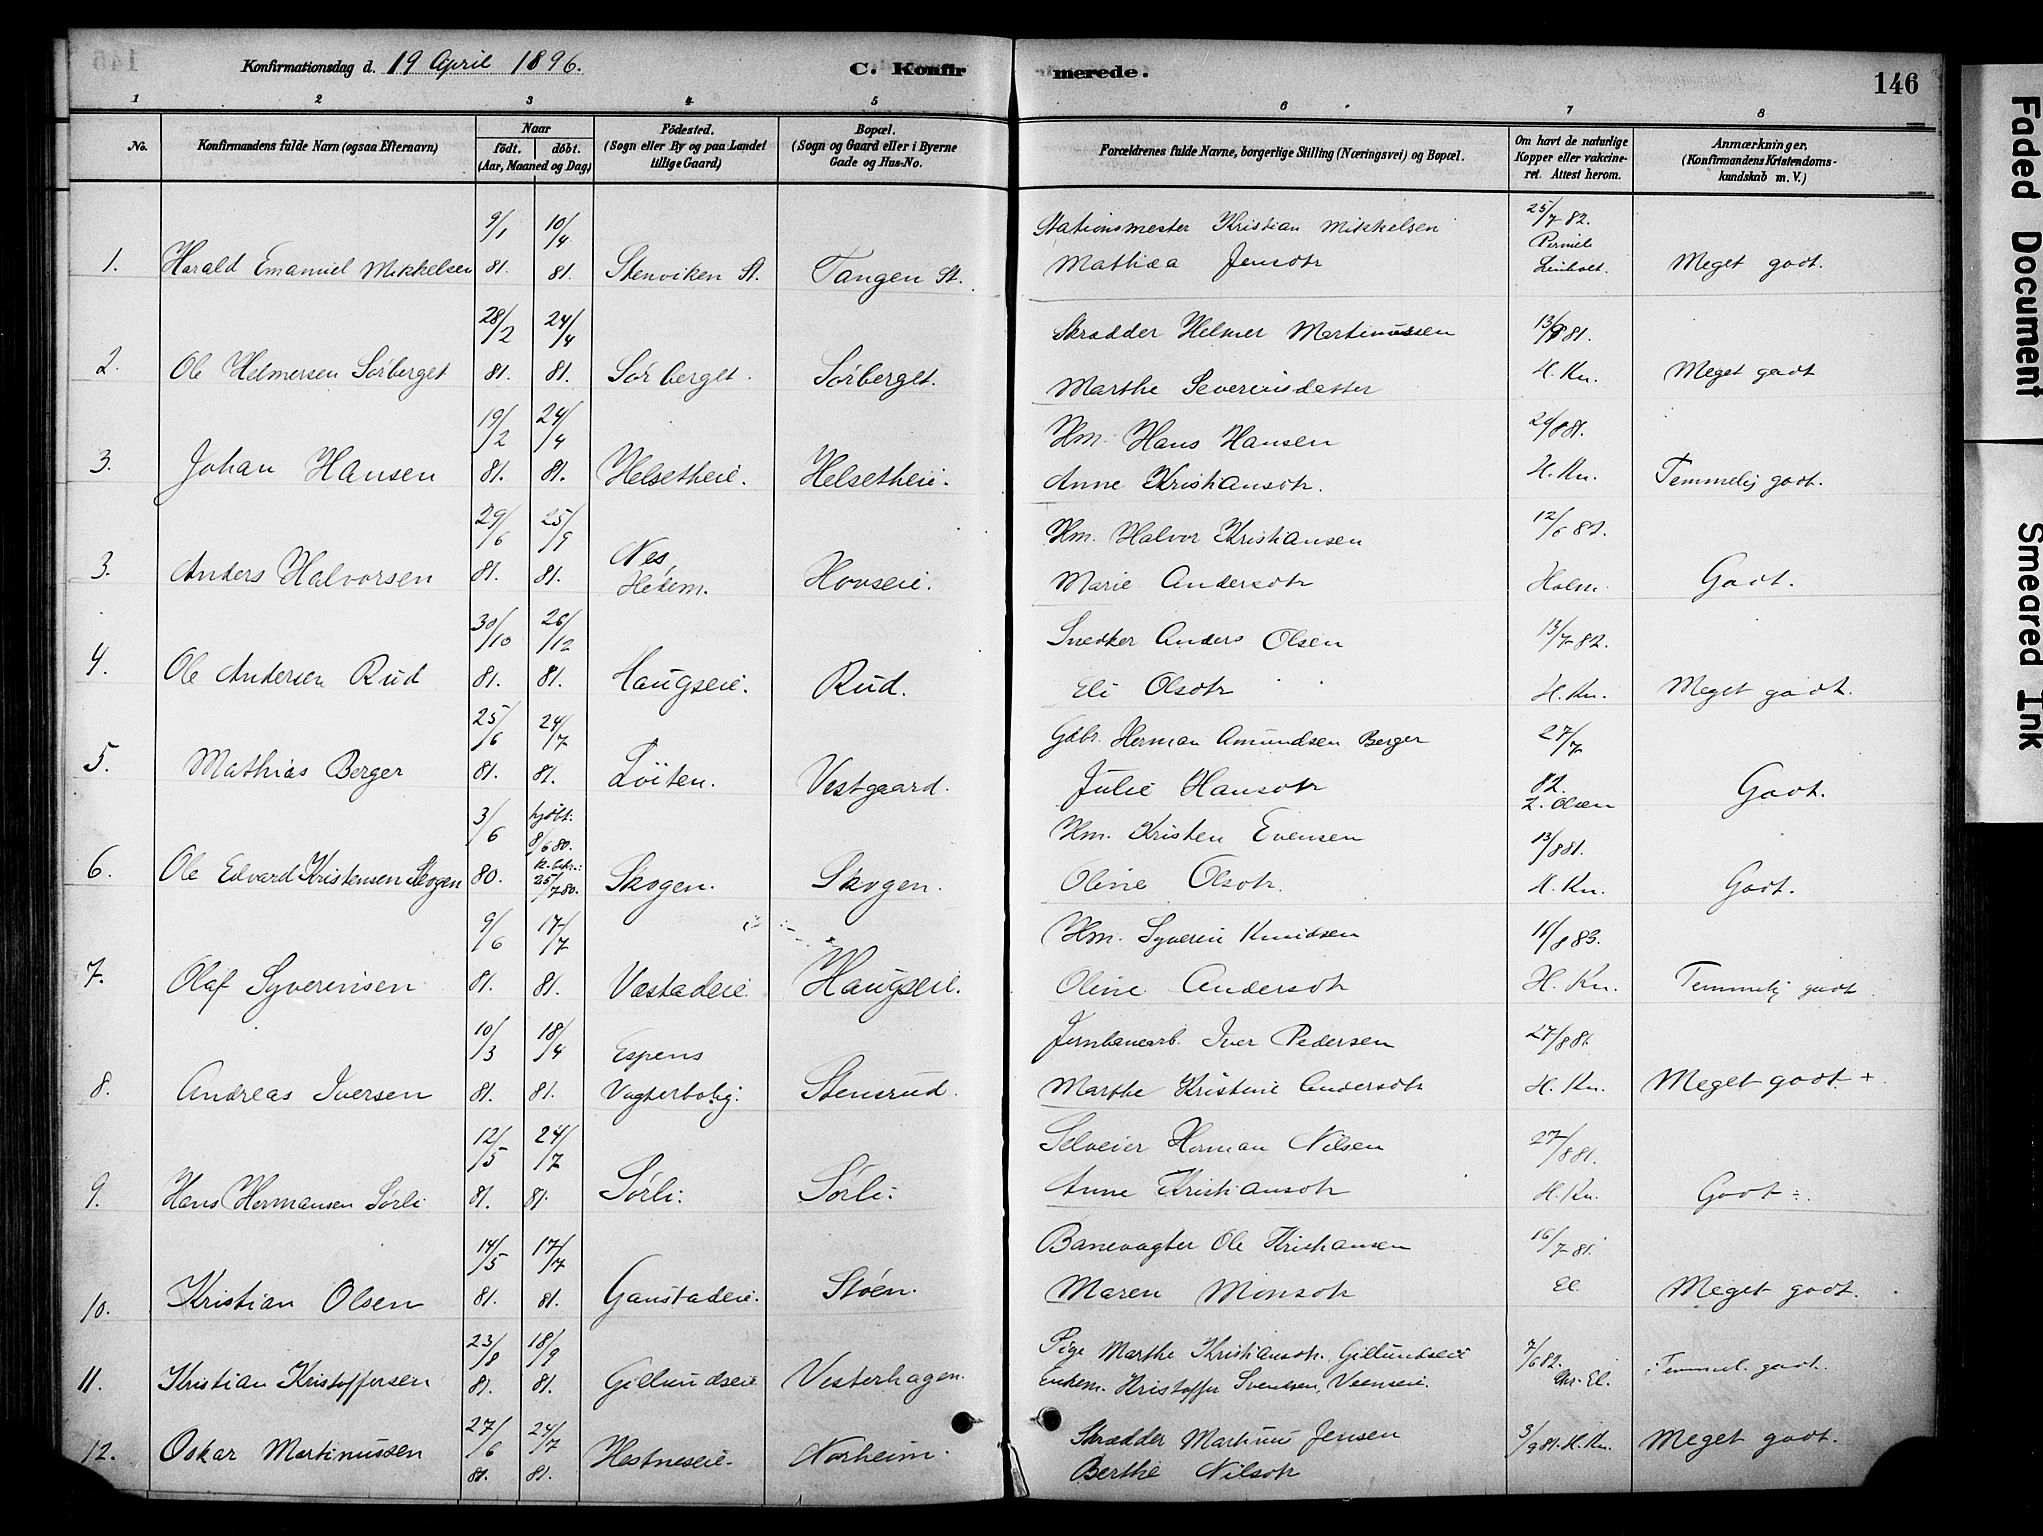 Konfirmationsdag d. 19 April 1896.
C. Konfirmerede.
146
1 2 3 4 5 6 7 8
No.
Konfirmandens fulde Navn (ogsaa Efternavn)
Naar
födt. döbt.
(Aar, Maaned og Dag)
Födested.
(Sogn eller By og paa Landet
tillige Gaard)
Bopæl.
(Sogn og Gaard eller i Byerne
Gade og Hus-No.
Forældrenes fulde Navne, borgerlige Stilling (Næringsvei) og Bopæl.
Om havt de naturlige
Kopper eller vakcine-
ret. Attest herom.
Anmærkninger.
(Konfirmandens Kristendoms-
kundskab m. V.)
9/1 10/4 Stationsmester Kristian Mikkelsen 25/7 82.
1. Harald Emanuel Mikkelsen 81. 81. Stenviken St. Tangen St. Mathea Jensdtr Meget godt.
28/2 24/4 Skrædder Helmer Martinussen 13/9 81.
2. Ole Helmersen Sörberget 81. 81. Sörberget. Sörberget. Marthe Severinsdatter H. Kn. Meget godt
19/2 24/4 Hm. Hans Hansen 29/8 81.
3. Johan Hansen 81. 81. Helsetheie. Helsetheie. Anne Kristiansdtr. H. Kn. Temmelig godt.
29/6 25/9 Hm. Halvor Kristiansen 12/6 82.
3. Anders Halvorsen 81. 81. Nes, Hedem. Hovseie. Marie Andersdtr Holm. Godt.
30/10 26/12 Snedker Anders Olsen 13/7 82.
4. Ole Andersen Rud 81. 81. Haugseie. Rud. Eli Olsdtr H. Kn. Meget godt.
25/6 24/7 Gdbr. Herman Amundsen Berger 27/7
5. Mathias Berger 81. 81. Löiten. Vestgaard. Julie Hansdtr 82. Z. Olsen Godt.
3/6 hjdbt. 8/6 80. Hm. Kristen Evensen 13/8 81.
6. Ole Edvard Kristensen Skogen 80. 25/7 80. Skogen. Skogen. Oline Olsdtr. H. Kn. Godt.
9/6 17/7 Hm. Syverin Knudsen 11/8 83.
7. Olaf Syverinsen 81. 81. Vestadeie. Haugseie. Oline Andersdtr H. Kn. Temmelig godt
10/3 18/4 Espens Jernbanearb. Iver Pedersen 27/8 81.
8. Andreas Iversen 81. 81. Vagterbolig. Stensrud. Marthe Kristine Andersdtr H. Kn. Meget godt +
12/5 24/7 Selveier Herman Nilsen 27/8 81.
9. Hans Hermansen Sörli 81. 81. Sörli. Sörli. Anne Kristiansdtr H. Kn. Godt ÷.
14/5 17/7 Banevagter Ole Kristiansen 16/7 81.
10. Kristian Olsen 81. 81. Gaustadeie. Stöen. Maren Monsdtr El. Meget godt.
23/8 18/9 Pige Marthe Kristiansdtr. Gillundseie 7/6 82.
11. Kristian Kristoffersen 81. 81. Gillundseie Vesterhagen. Enkem. Kristoffer Svendsen, Veenseie. Chr. El. Temmel. godt.
27/6 24/7 Skrædder Martinus Jensen 3/9 81. H. Kn.
12. Oskar Martinussen 81. 81. Hestneseie. Norheim. Berthe Nilsdtr Meget godt.
Faded Document
Smeared Ink